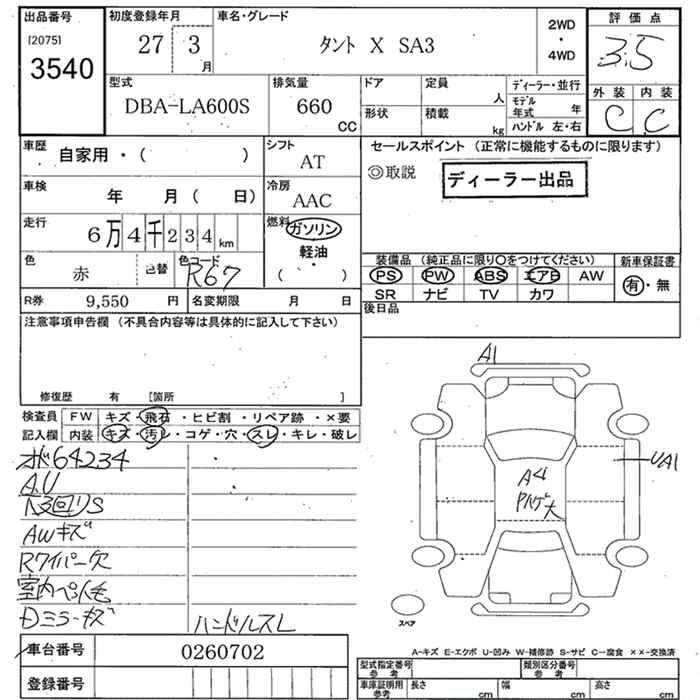 出品番号
[2075]
3540
初度登録年月
27 3
月
車名・グレード
タント X SA3
2WD
・
4WD
評価点
3.5
外装 内装
C C
型式
DBA-LA600S
排気量
660
CC
ドア
形状
定員
人
積載
kg
ディーラー・並行
モデル年式 年
ハンドル 左・右
車歴
自家用・( )
シフト
AT
車検
年 月 ( 日)
冷房
AAC
走行
6万4千234 km
燃料
ガソリン
軽油
・
( )
色
赤
色替
色コード
R67
R券 9,550 円
名変期限 月 日
セールスポイント (正常に機能するものに限ります)
◎取説
ディーラー出品
装備品 (純正品に限り○をつけてください)
PS PW ABS エアB AW
SR ナビ TV カワ
新車保証書
有・無
後日品
注意事項申告欄 (不具合内容等は具体的に記入して下さい)
修復歴 有 [箇所 ]
検査員
記入欄
FW キズ・飛石・ヒビ割・リペア跡・×要
内装 キズ・汚レ・コゲ・穴・スレ・キレ・破レ
オド64234
A,U
AWキズ
Rワイパー欠
Dミラーキズ
ハンドルスレ
A1
UA1
A4
スペア
A-キズ E-エクボ U-凹み W-補修跡 S-サビ C-腐食 ××-交換済
車台番号
0260702
登録番号
型式指定番号
参考
類別区分番号
参考
車庫証明用
参考
長さ cm
幅 cm
高さ cm